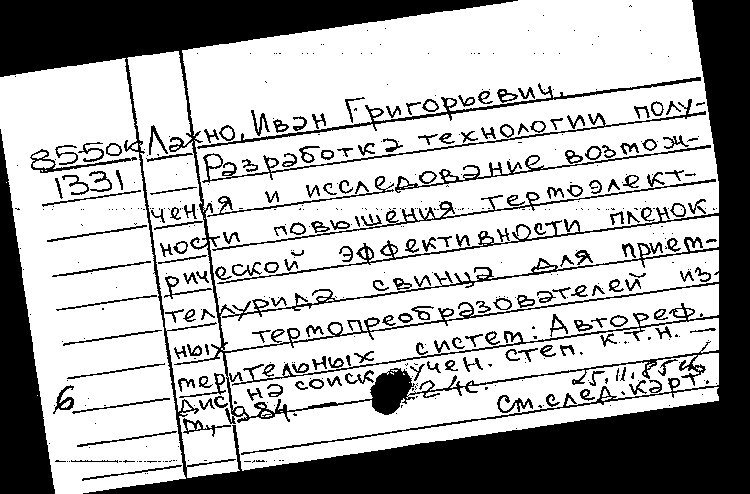 85-50к Лахно, Иван Григорьевич.
1331 Разработка технологии полу-
чения и исследование возмож-
ности повышения термоэлект-
рической эффективности пленок
теллурида свинца для прием-
ных термопреобразователей из-
мерительных систем: Автореф.
дис. на соиск. учен. степ. к.т.н. —
М., 1984. — 24с.
25.11.85
см. след. карт.
б